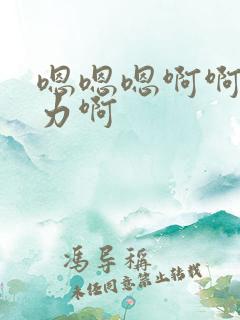 嗯嗯嗯啊啊
力啊
冯导稱
未经同意禁止转载